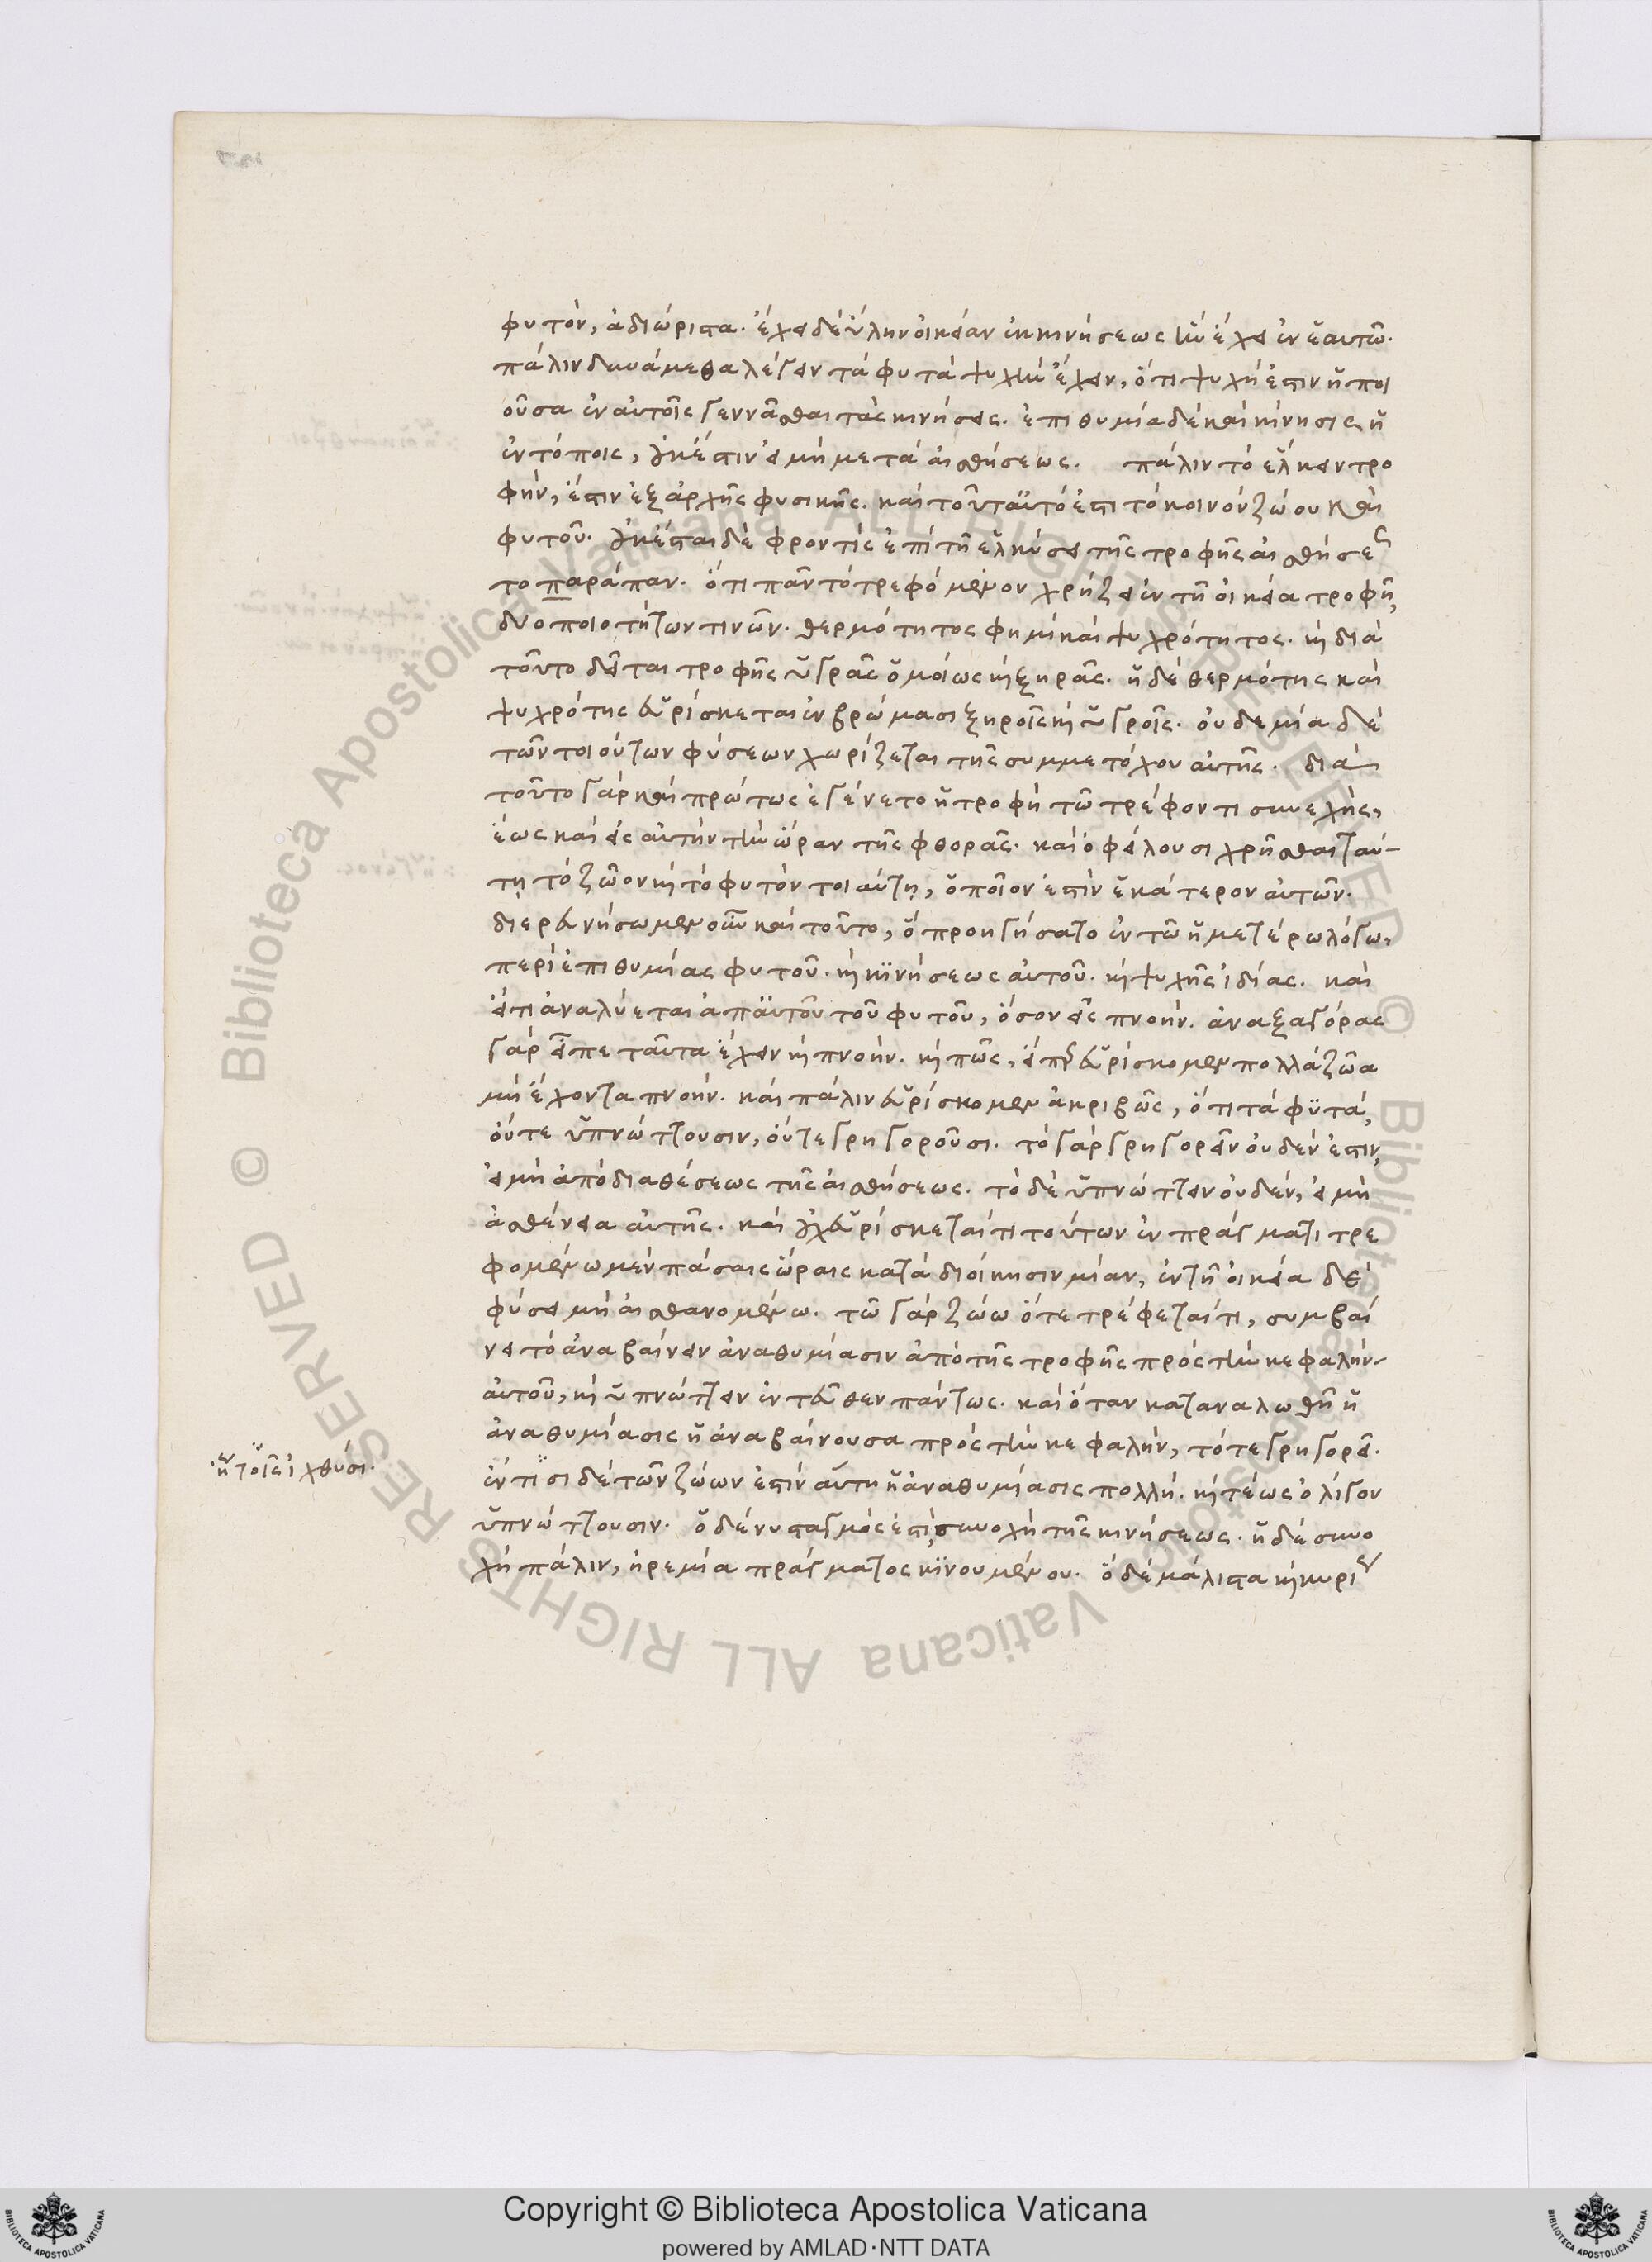 φυτόν, ἀδιώριστα. ἔχει δὲ ὕλην οἰκείαν ἐκ κινήσεως ἣν ἔχει ἐν ἑαυτῶ.
πάλιν δυνάμεθα λέγειν τὰ φυτὰ ψυχὴν ἔχειν, ὅτι ψυχή ἐστιν ἡ ποι
οῦσα ἐν αὐτοῖς γεννᾶσθαι τὰς κινήσεις. ἐπιθυμία δὲ καὶ κίνησις ἡ
ἐν τόποις, οὐκ ἔστιν εἰ μὴ μετὰ αἰσθήσεως. πάλιν τὸ ἕλκειν τρο
φὴν, ἔστιν ἐξ ἀρχῆς φυσικῆς. καὶ τοῦτ αὐτό ἐστι τὸ κοινὸν ζώου καὶ
φυτοῦ. οὐκ ἔσται δὲ φροντὶς ἐπὶ τῆ ἑλκύσει τῆς τροφῆς αἰσθήσε
το παράπαν. ὅτι πᾶν τὸ τρεφόμενον χρήζει ἐν τῆ οἰκεία τροφῆ,
δύο ποιοτήτων τινῶν. θερμότητος φημὶ καὶ ψυχρότητος. καὶ διὰ
τοῦτο δεῖται τροφῆς ὑγρᾶς ὁμοίως καὶ ξηρᾶς. ἡ δὲ θερμότης καὶ
ψυχρότης εὑρίσκεται ἐν βρώμασι ξηροῖς καὶ ὑγροῖς. οὐδεμία δὲ
τῶν τοιούτων φύσεων χωρίζεται τῆς συμμετόχου αὐτῆς. διὰ
τοῦτο γὰρ καὶ πρώτως ἐγένετο ἡ τροφὴ τῶ τρέφοντι συνεχὴς,
ἕως καὶ εἰς αὐτὴν τὴν ὥραν τῆς φθορᾶς. καὶ ὀφείλουσι χρῆσθαι ταύ-
τη τὸ ζῶον καὶ τὸ φυτὸν τοιαύτη, ὁποῖόν ἐστιν ἑκάτερον αὐτῶν.
διερευνήσωμεν οὖν καὶ τοῦτο, ὃ προηγήσατο ἐν τῶ ἡμετέρω λόγω,
περὶ ἐπιθυμίας φυτοῦ. καὶ κινήσεως αὐτοῦ. καὶ ψυχῆς ἰδίας. καὶ
εἴ τι ἀναλύεται ἀπ αὐτοῦ τοῦ φυτοῦ, ὅσον εἰς πνοήν. ἀναξαγόρας
γὰρ εἶπε ταῦτα ἔχειν καὶ πνοήν. καὶ πῶς, εἴπερ εὑρίσκομεν πολλὰ ζῶα
μὴ ἔχοντα πνοήν. καὶ πάλιν εὑρίσκομεν ἀκριβῶς, ὅτι τὰ φυτὰ,
οὔτε ὑπνώττουσιν, οὔτε γρηγοροῦσι. τὸ γὰρ γρηγορεῖν οὐδέν ἐστιν,
εἰ μὴ ἀπὸ διαθέσεως τῆς αἰσθήσεως. τὸ δὲ ὑπνώττειν οὐδὲν, εἰ μὴ
ἀσθένεια αὐτῆς. καὶ οὐχ εὑρίσκεταί τι τούτων ἐν πράγματι τρε
φομένω μὲν πάσαις ὥραις κατὰ διοίκησιν μίαν, ἐν τῆ οἰκεία δὲ
φύσει μὴ αἰσθανομένω. τῶ γὰρ ζώω ὅτε τρέφεταί τι, συμβαί
νει τὸ ἀναβαίνειν ἀναθυμίασιν ἀπὸ τῆς τροφῆς πρὸς τὴν κεφαλὴν
αὐτοῦ, καὶ ὑπνώττειν ἐντεῦθεν πάντως. καὶ ὅταν καταναλωθῆ ἡ
ἀναθυμίασις ἡ ἀναβαίνουσα πρὸς τὴν κεφαλὴν, τότε γρηγορεῖ.
ἢ τοῖς ἰχθύσι.
ἔν τισι δὲ τῶν ζώων ἐστὶν αὕτη ἡ ἀναθυμίασις πολλή. καὶ τέως ὀλίγον
ὑπνώττουσιν. ὁ δὲ νυσταγμός ἐστι, συνοχὴ τῆς κινήσεως. ἡ δὲ συνο
χὴ πάλιν, ἠρεμία πράγματος κινουμένου. ὃ δὲ μάλιστα καὶ κυρι